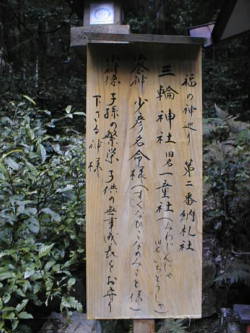 福の神めぐり 第二番納札社
三輪神社 旧一童社(みわじんじゃ
旧 いちどうしゃ)
祭神 少彦名命様(すくなひこなのみこと様)
御利益 子孫の繁栄 子供の無事成長をお守り
下さる神様